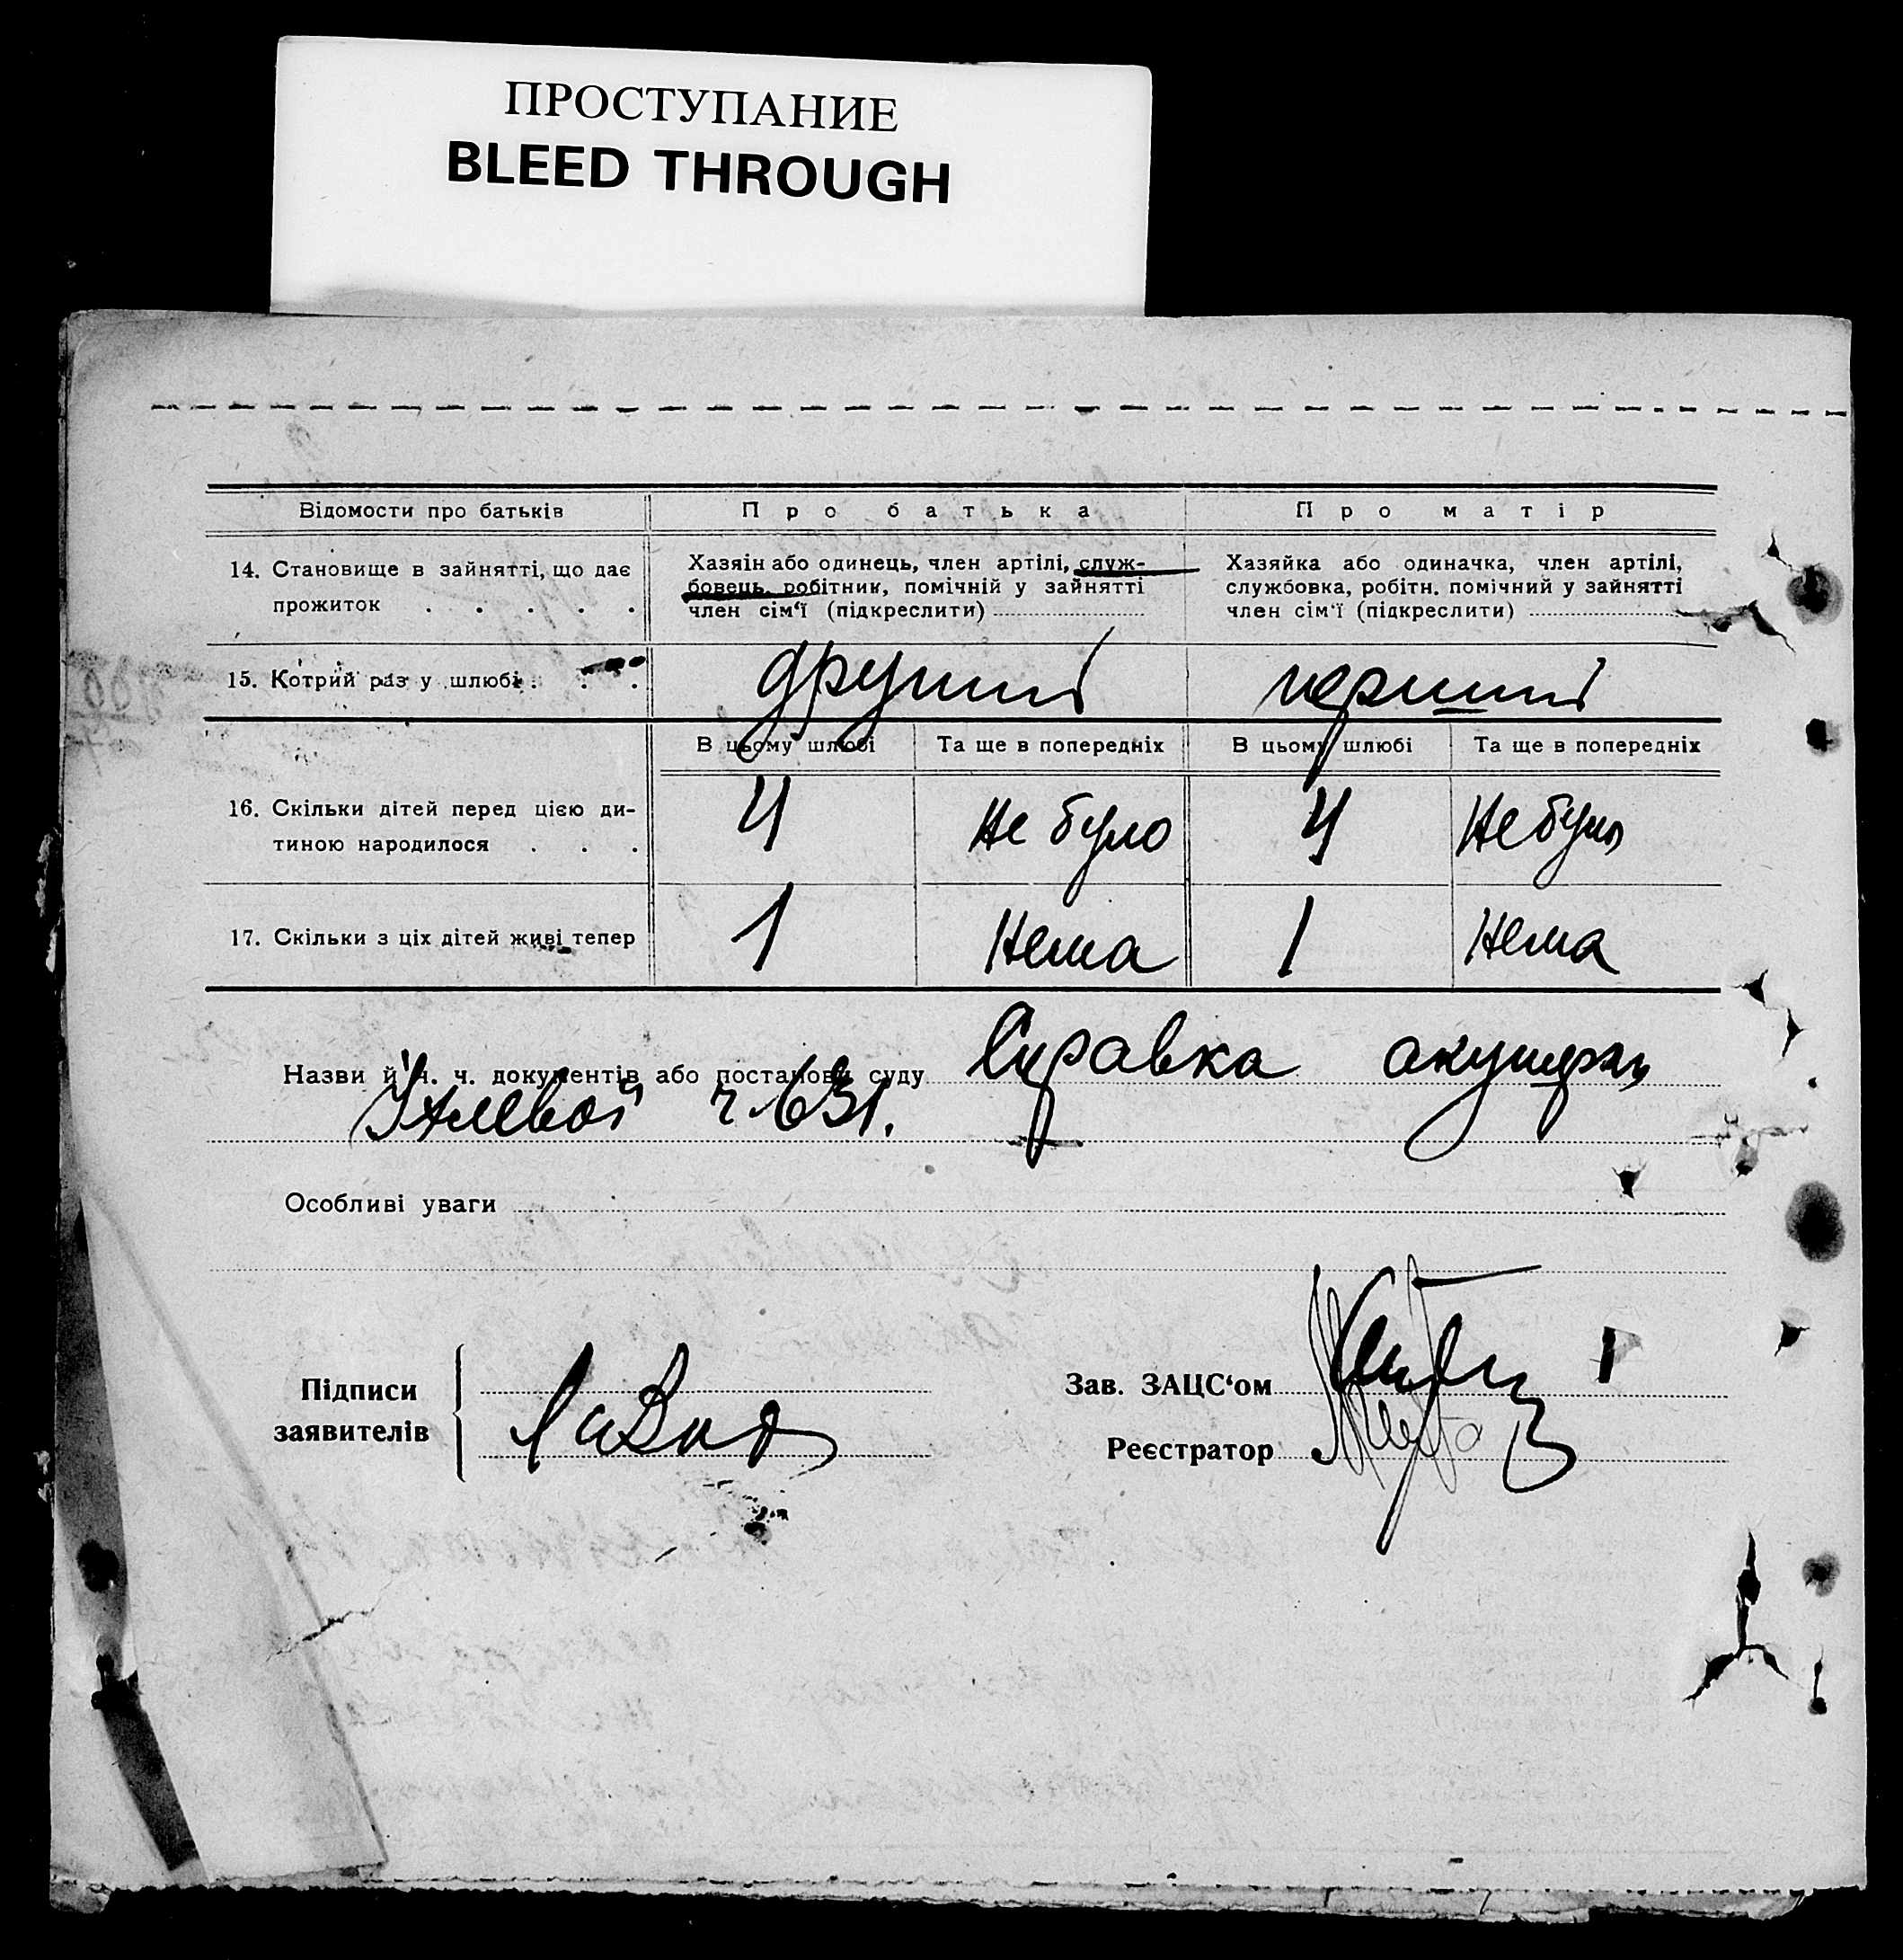 ПРОСТУПАНИЕ
BLEED THROUGH
Відомости про батьків
Про батька
Про матір
14. Становище в зайнятті, що дає
прожиток . . . . .
Хазяїн або одинець, член артілі, служ-
бовець, робітник, помічній у зайнятті
член сім‘ї (підкреслити)
Хазяйка або одиначка, член артілі,
службовка, робітн. помічний у зайнятті
член сім‘ї (підкреслити)
15. Котрий раз у шлюбі . . .
другий
перший
В цьому шлюбі
Та ще в попередніх
В цьому шлюбі
Та ще в попередніх
16. Скільки дітей перед цією ди-
тиною народилося . . .
4
Не було
4
Не було
17. Скільки з ціх дітей живі тепер
1
Нема
1
Нема
Назви й ч. ч. документів або постанови суду Справка акушерки
ч 631.
Особливі уваги
Підписи
заявителів
Зав. ЗАЦС‘ом
Реєстратор